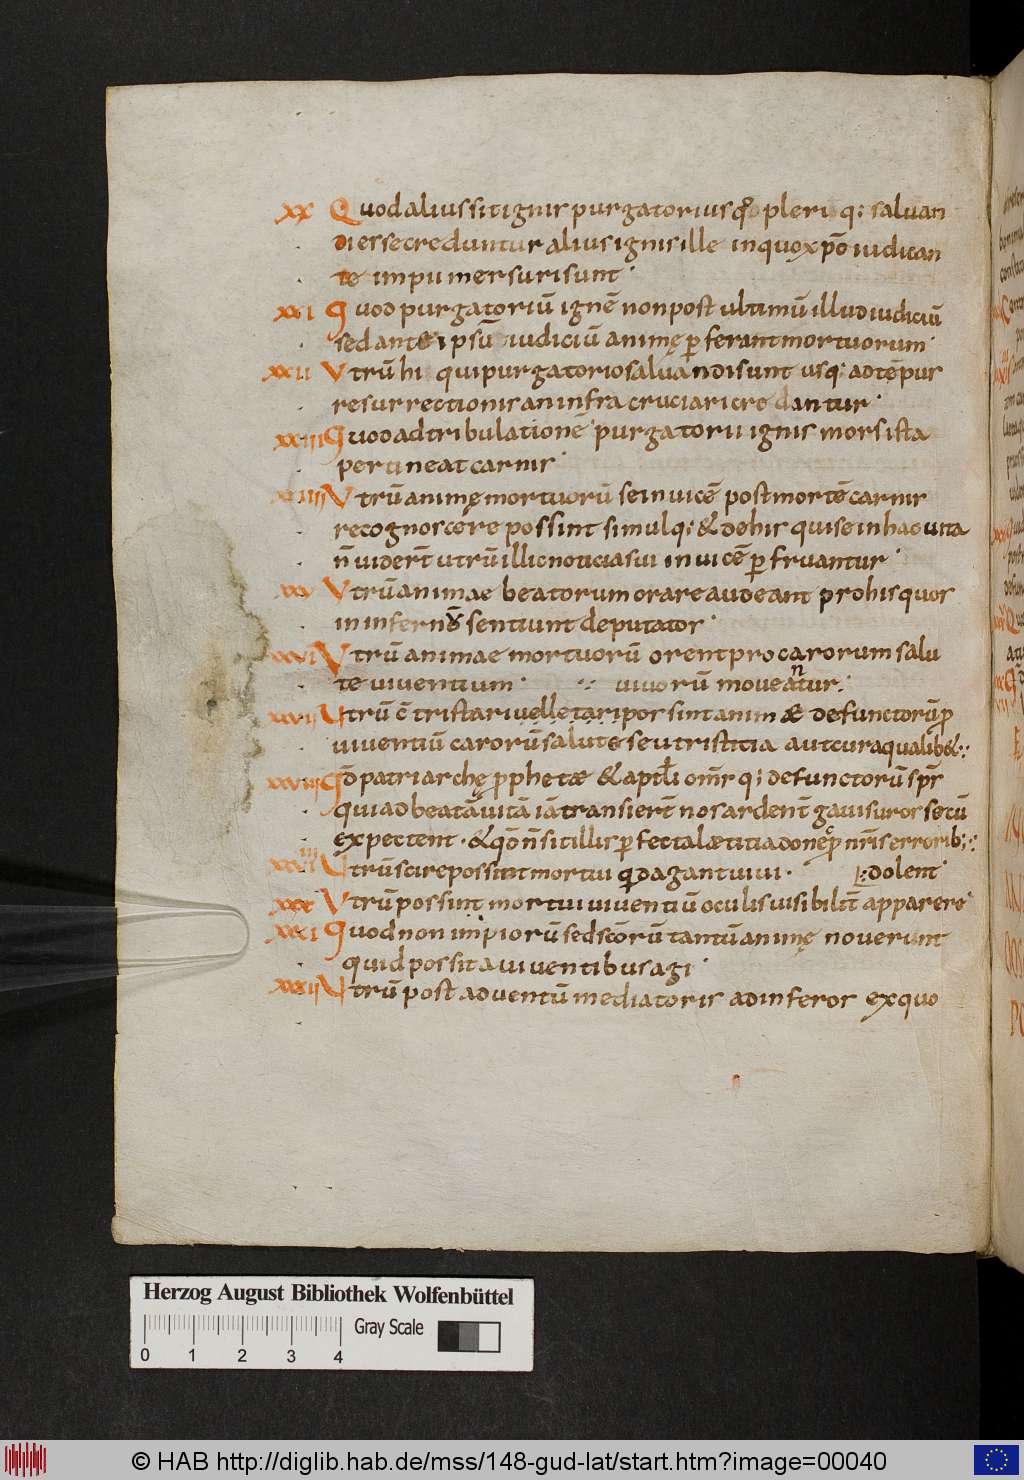 xx Quod alius sit ignis purgatorius q̊ pleriq; saluan
di esse creduntur alius ignis ille in quo xp̄o iudican
te impii mersuri sunt ·
xxi Quod purgatoriū ignē non post ultimū illud iudiciū
sed ante ipsū iudiciū animę ꝑferant mortuorum ·
xxii Vtrū hi qui purgatorio saluandi sunt usq; ad tēpus
resurrectionis an infra cruciari credantur ·
xxiii Quod ad tribulationē purgatorii ignis mors ista
pertineat carnis ·
xxiiii Vtrū animę mortuorū se inuicē post mortē carnis
recognoscere possint simulq; & de his qui se in hac uita
n̄ uidert̄ utrū illic noticia sui inuicē ꝑfruantur ·
xxv Vtrū animae beatorum orare audeant pro his quos
in inferno sentiunt deputatos ·
xxvi Vtrū animae mortuorū orent pro carorum salu
te uiuentium · uiuorū moueantur ·
xxvii Vtrū c̄tristari uel lętari possint animæ defunctorū ꝓ
uiuentiū carorū salute seu tristitia aut cura qualib&
xxviii Qd̄ patriarchę ꝓphetæ & aptl̄i om̄sq; defunctorū sp̄s
qui ad beatā uitā iā transiert̄ nos ardent̄ gauisuros secū
expectent · & qō n̄ sit illis ꝑfecta lætitia donec ꝓ nr̄is errorib;
xxviiii Vtrū scire possint mortui qd agant uiui · dolent
xxx Vtrū possint mortui uiuentiū oculis uisibilit̄ apparere
xxxi Quod non impiorū sed sc̄orū tantū animę nouerunt
quid possit a uiuentibus agi ·
xxxii Vtrū post aduentū mediatoris ad inferos ex quo
Herzog August Bibliothek Wolfenbüttel
Gray Scale
0 1 2 3 4
© HAB http://diglib.hab.de/mss/148-gud-lat/start.htm?image=00040